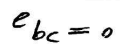 e_{bc} = 0